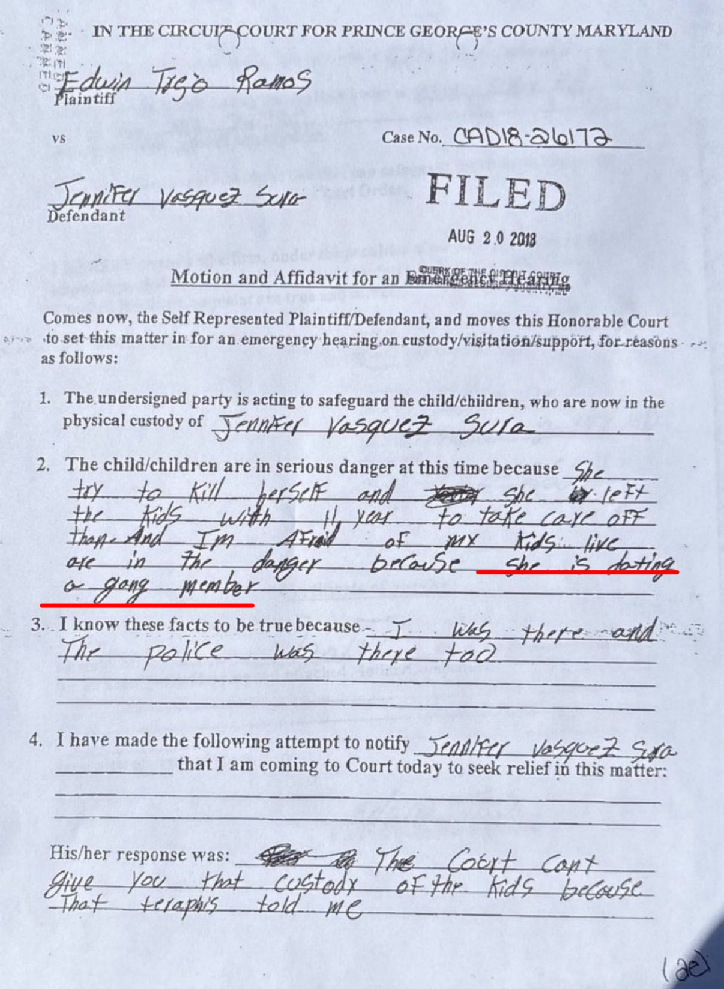 IN THE CIRCUIT COURT FOR PRINCE GEORGE'S COUNTY MARYLAND
Edwin Trejo Ramos
Plaintiff
vs
Case No. CAD18-26172
Jennifer Vasquez Sura
Defendant
FILED
AUG 20 2018
CLERK OF THE CIRCUIT COURT
Motion and Affidavit for an Emergency Hearing
Comes now, the Self Represented Plaintiff/Defendant, and moves this Honorable Court
to set this matter in for an emergency hearing on custody/visitation/support, for reasons
as follows:
1. The undersigned party is acting to safeguard the child/children, who are now in the
physical custody of Jennifer Vasquez Sura
2. The child/children are in serious danger at this time because She
try to kill herself and she left
the kids with 11 year to take care off
them And I'm Afraid of my kids live
are in the danger because she is dating
a gang member
3. I know these facts to be true because I was there and
The police was there too
4. I have made the following attempt to notify Jennifer Vasquez Sura
that I am coming to Court today to seek relief in this matter:
His/her response was: The Court cant
give you that custody of the kids because
That teraphis told me
(ae)